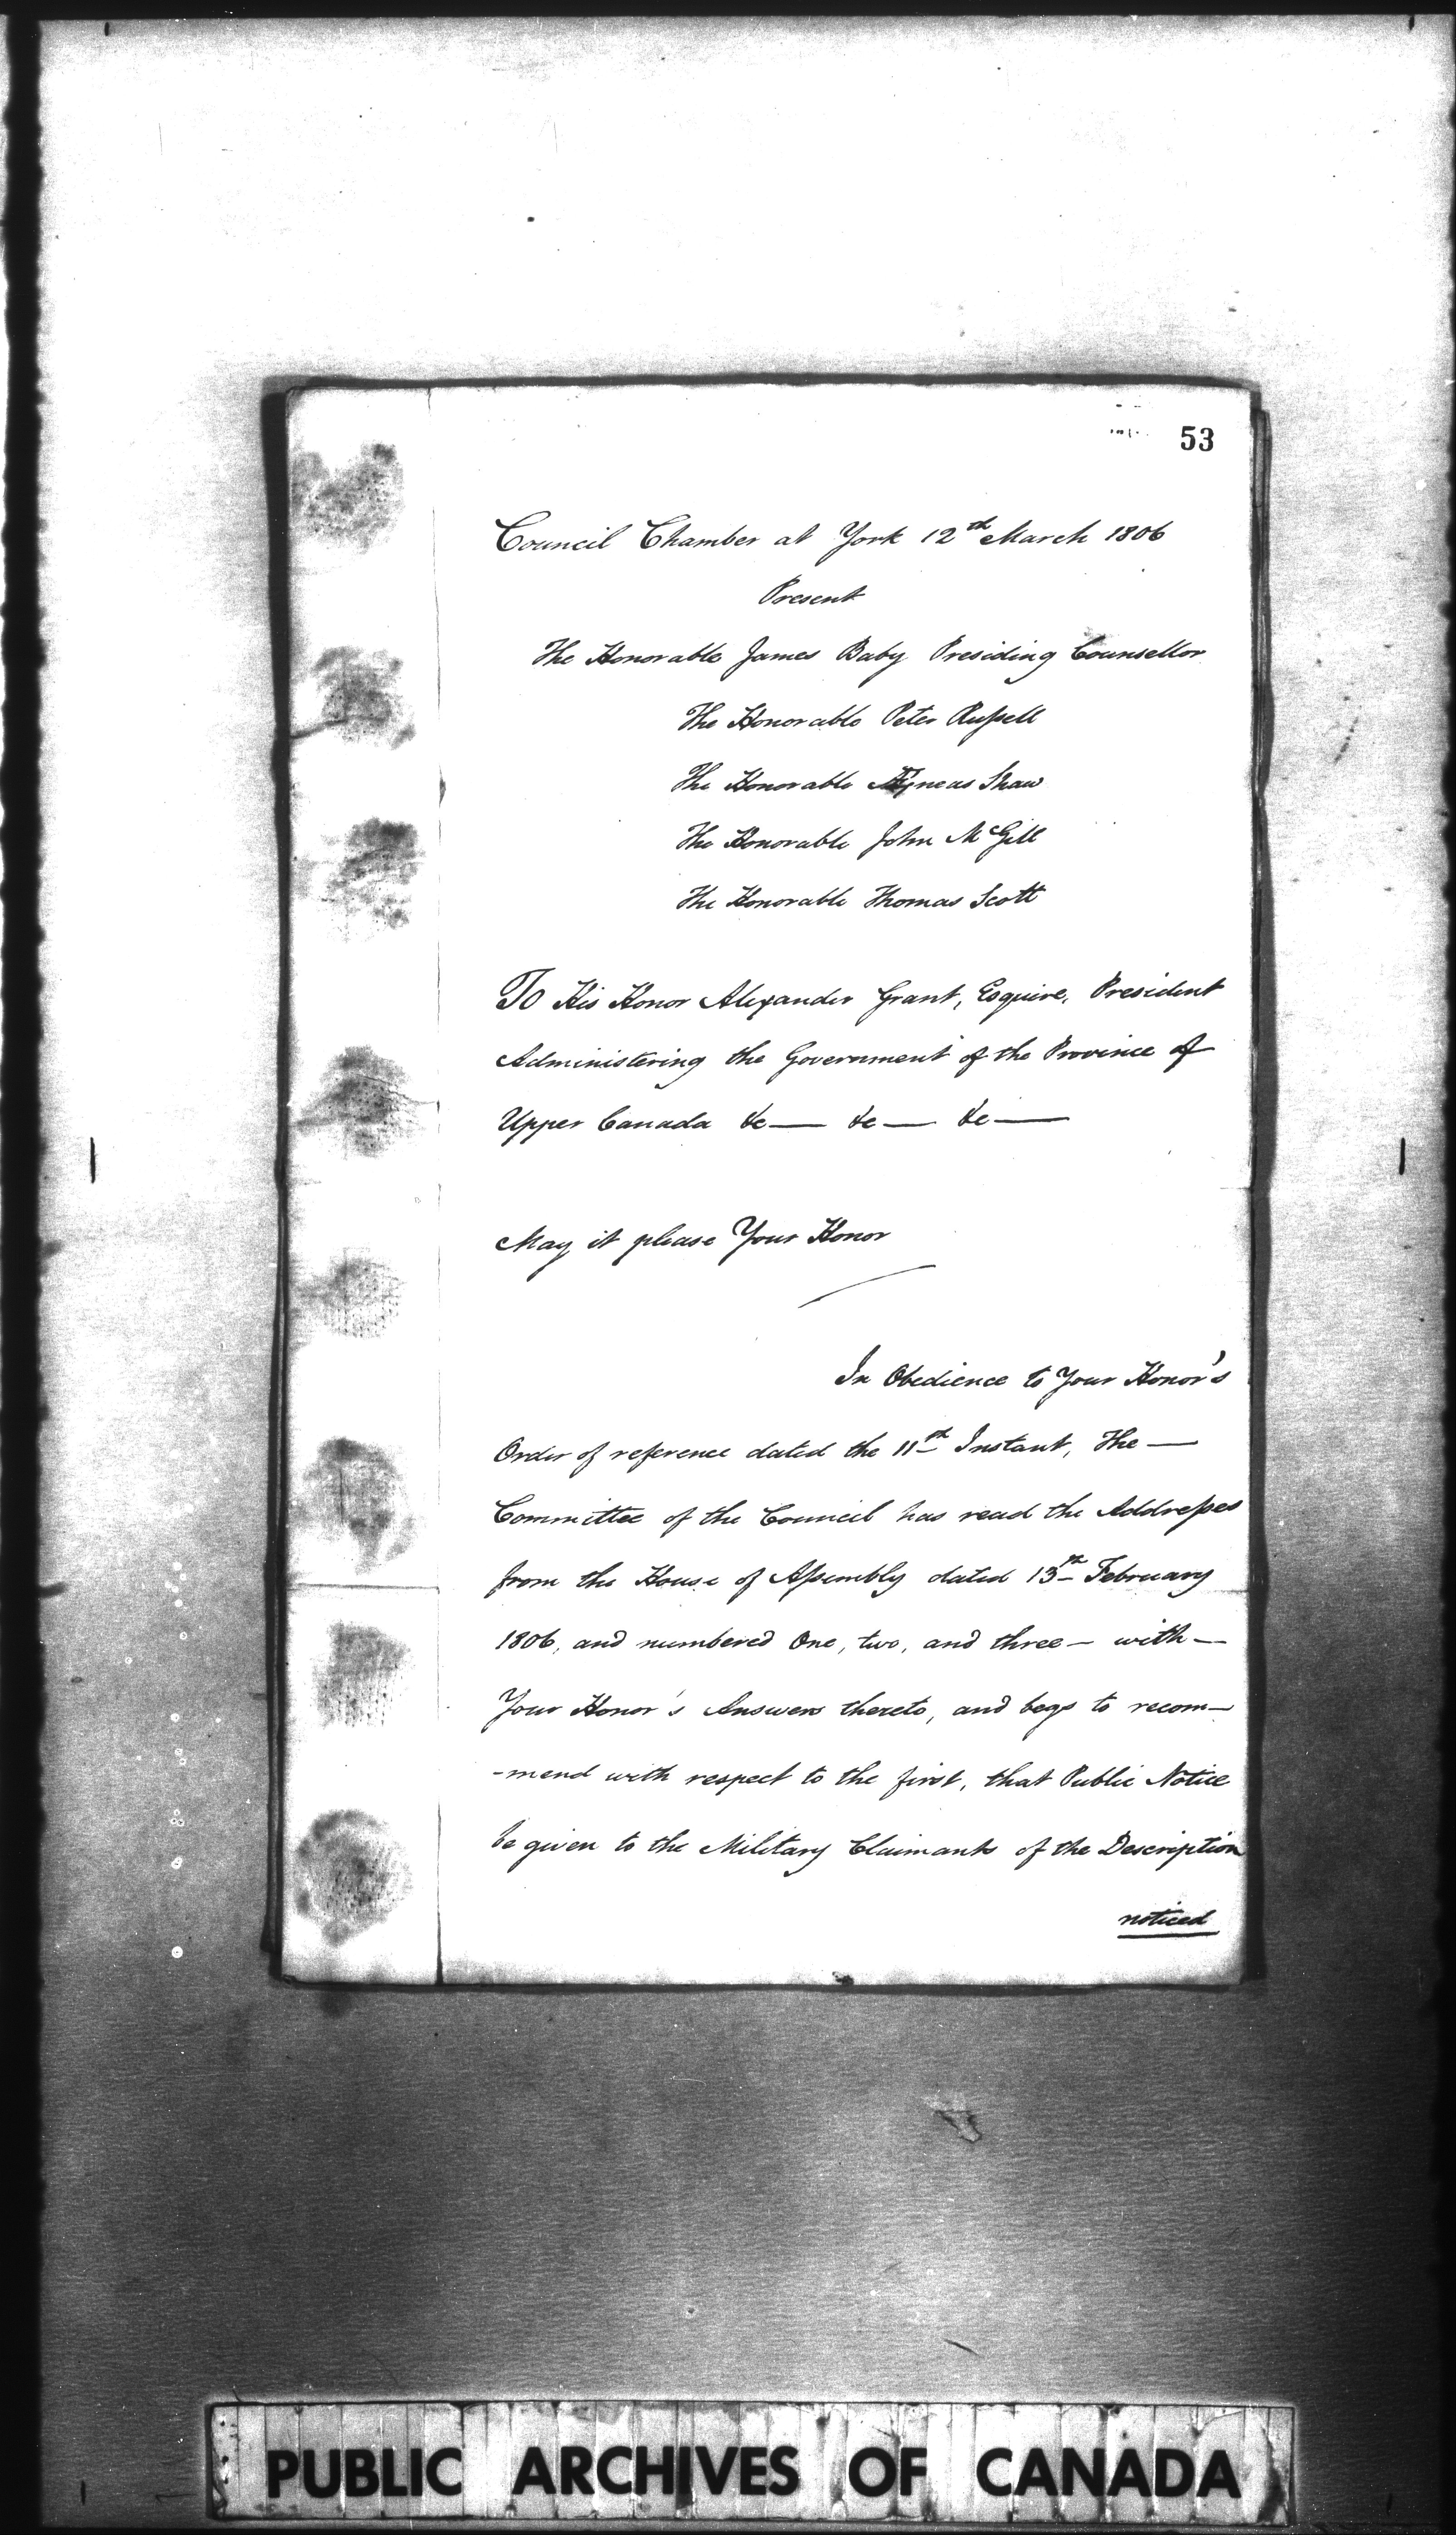 53
Council Chamber at York 12th March 1806
Present
The Honorable James Baby Presiding Counsellor
The Honorable Peter Russell
The Honorable Æneas Shaw
The Honorable John McGill
The Honorable Thomas Scott
To His Honor Alexander Grant, Esquire, President
Administering the Government of the Province of
Upper Canada &c — &c — &c —
May it please Your Honor
In Obedience to Your Honor's
Order of reference dated the 11th Instant, The —
Committee of the Council has read the Addresses
from the House of Assembly dated 13th February
1806, and numbered One, two, and three — with —
Your Honor's Answers thereto, and begs to recom—
-mend with respect to the first, that Public Notice
be given to the Military Claimants of the Description
noticed
PUBLIC ARCHIVES OF CANADA